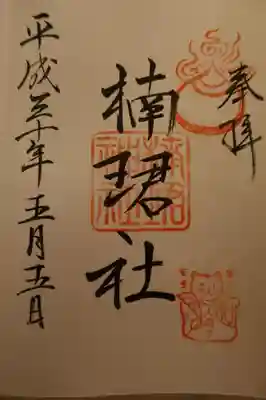 奉拝
楠珺社
平成三十年五月五日